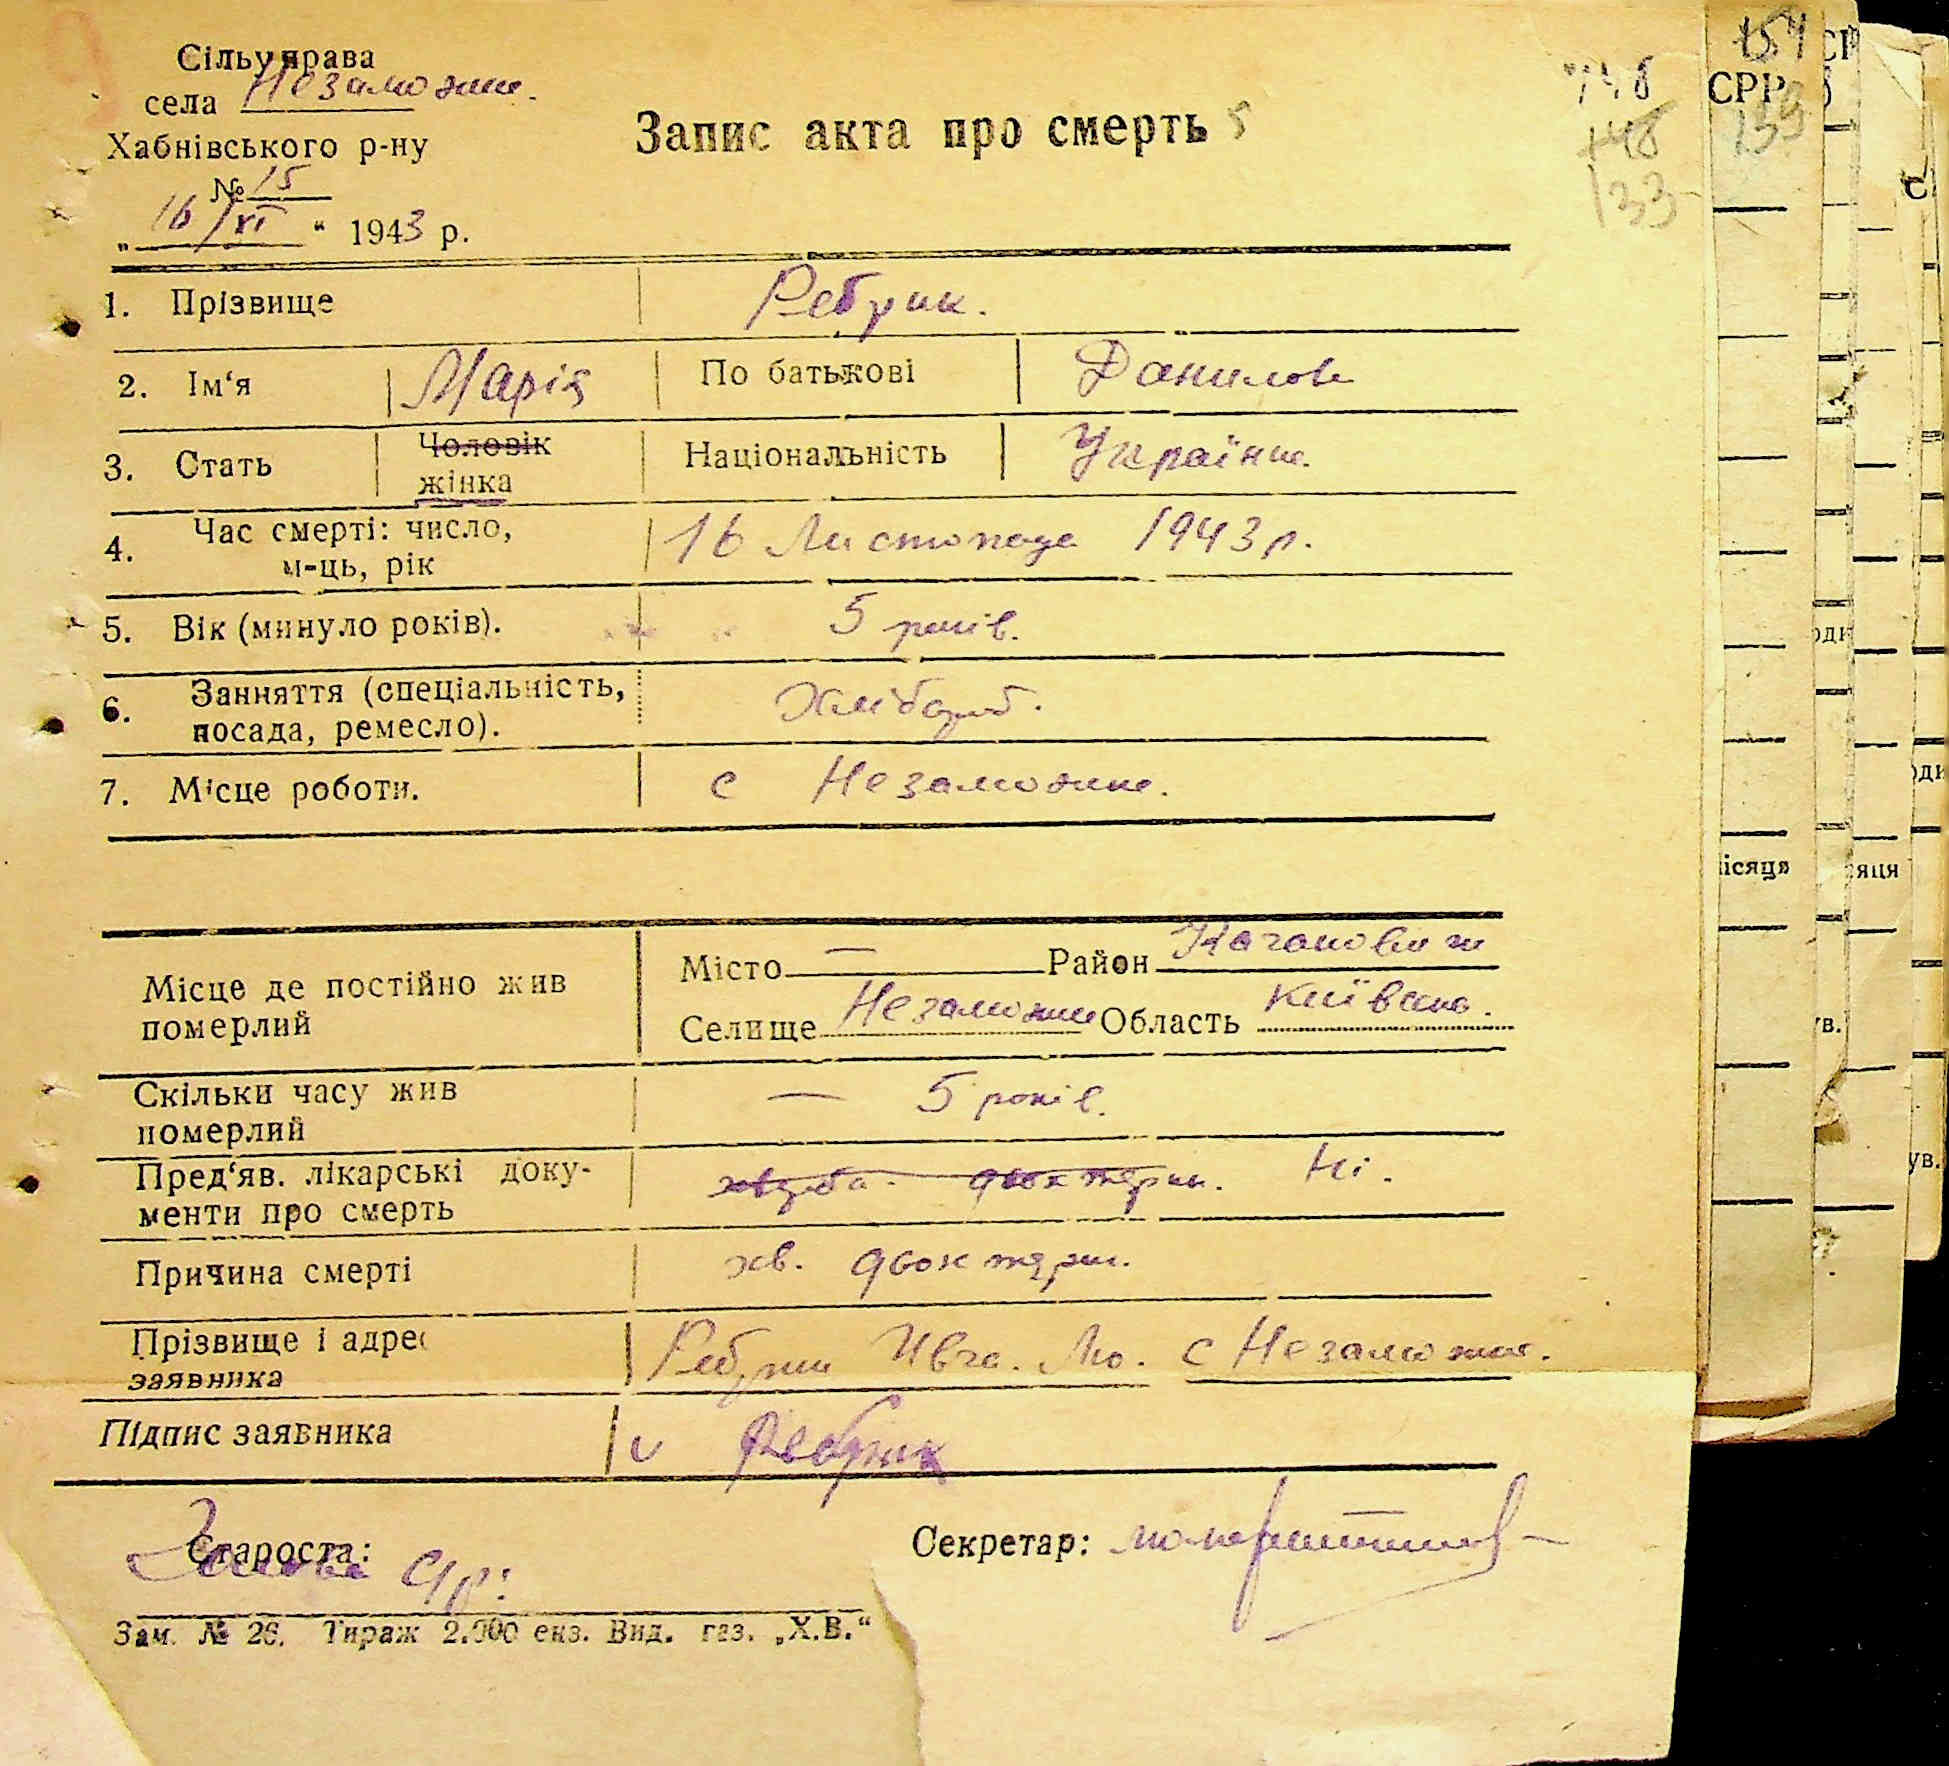 Сільуправа
села Незаможне.
Хабнівського р-ну
№ 15
„16/XI“ 1943 р.
Запис акта про смерть 5
148
148
133
154
139
СРР
1. Прізвище Ребрик.
2. Ім‘я Марія По батькові Данилов
3. Стать Чоловік жінка Національність Українк.
4. Час смерті: число, м-ць, рік 16 Листопада 1943 р.
5. Вік (минуло років). 5 років.
6. Заняття (спеціальність, посада, ремесло). Хлібороб.
7. Місце роботи. с Незаможне.
Місце де постійно жив померлий
Місто — Район Каганович
Селище Незаможне Область Київська.
Скільки часу жив померлий — 5 років.
Пред‘яв. лікарські документи про смерть Ні.
Причина смерті хв.
Прізвище і адрес заявника Ребрик с Незаможне.
Підпис заявника Ребрик
Староста:
Секретар:
Зам. № 26. Тираж 2.000 екз. Вид. газ. „Х.В.“
ісяця
яця
ув.